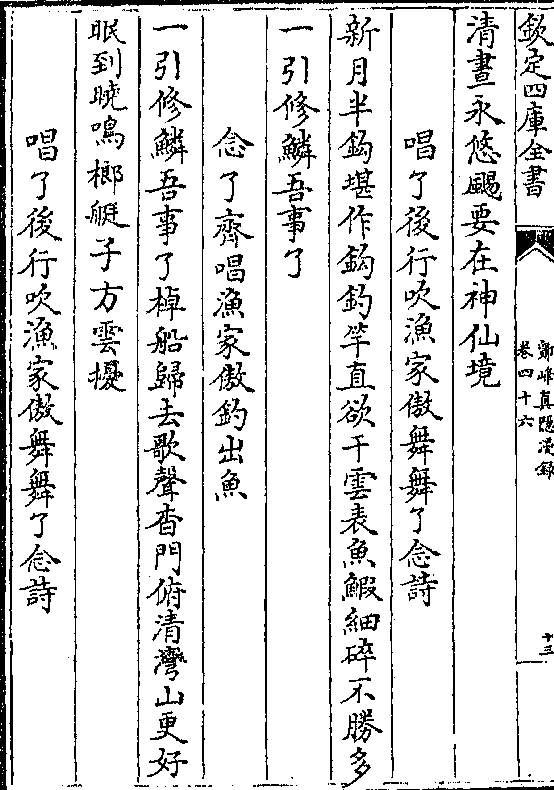 欽定四庫全書
鄮峰真隱漫錄
卷四十六
十三
清晝永悠颺要在神仙境
唱了後行吹漁家傲舞舞了念詩
新月半鈎堪作鈎釣竿直欲干雲表魚鰕細碎不勝多
一引修鱗吾事了
念了齊唱漁家傲釣出魚
一引修鱗吾事了棹船歸去歌聲杳門俯清灣山更好
眠到曉鳴榔艇子方雲擾
唱了後行吹漁家傲舞舞了念詩